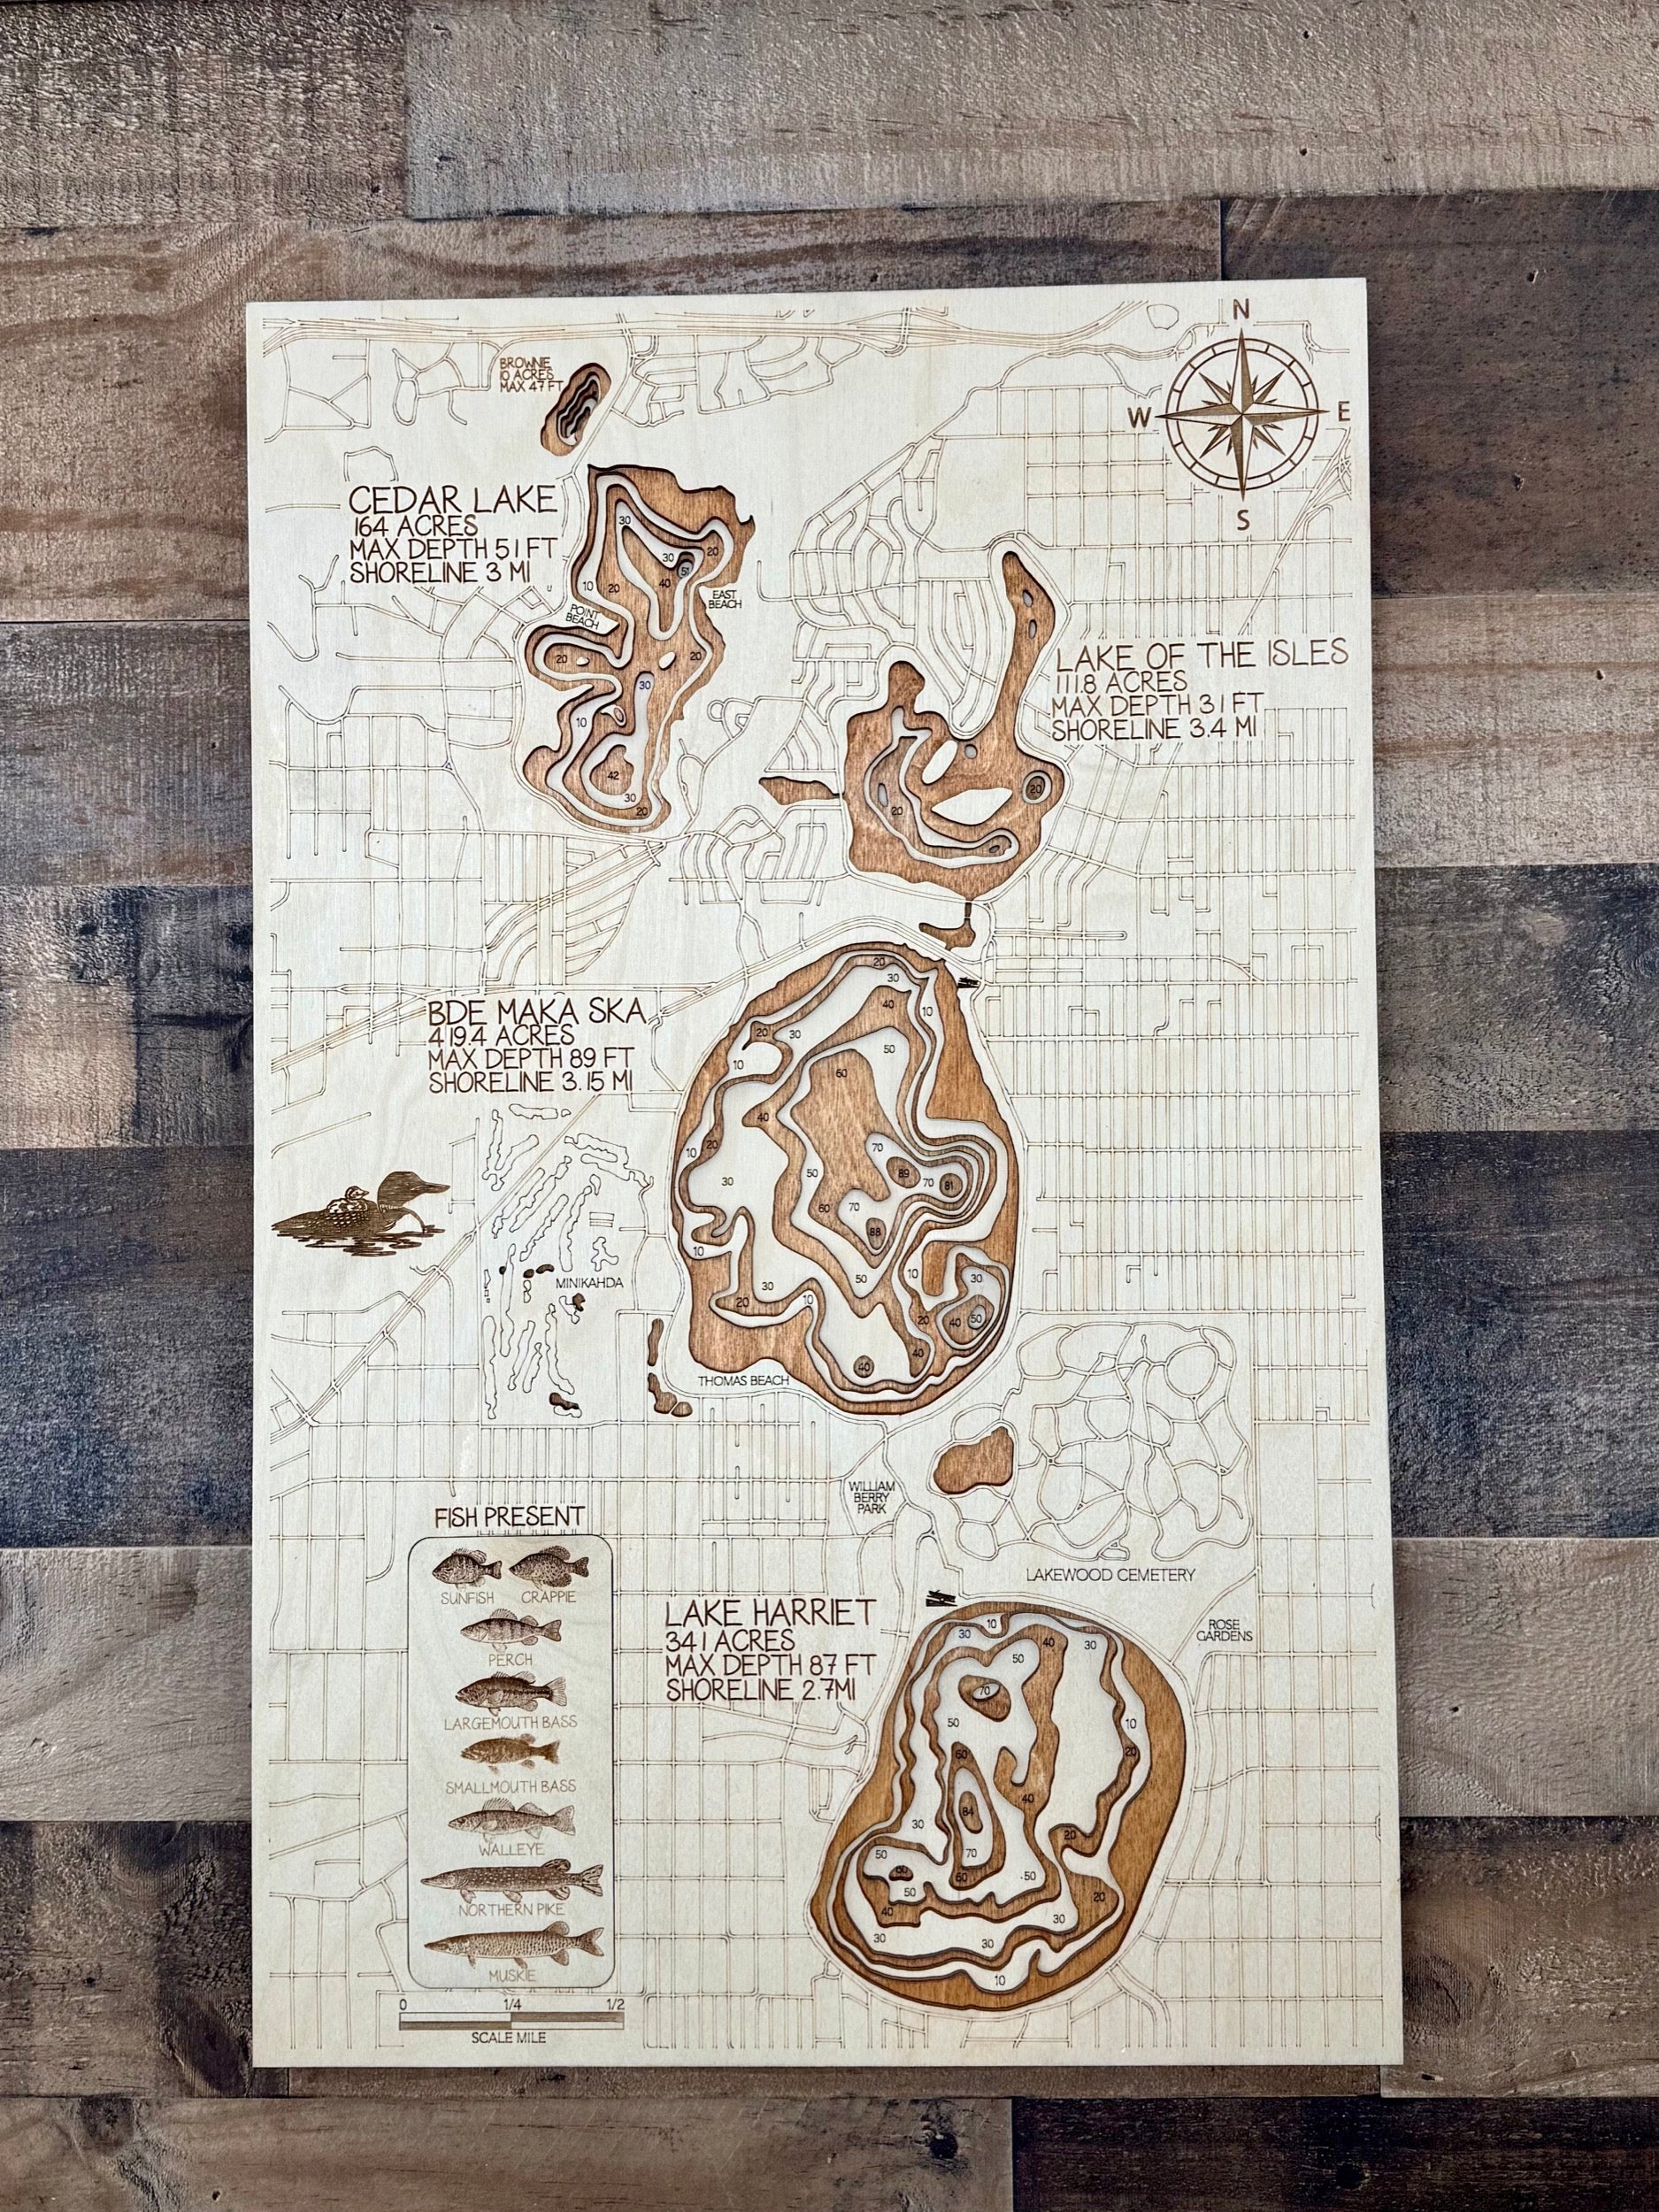 N
W
E
S
BROWNIE
10 ACRES
MAX 47 FT
CEDAR LAKE
164 ACRES
MAX DEPTH 51 FT
SHORELINE 3 MI
30
30
20
51
10
20
40
POINT
BEACH
EAST
BEACH
20
20
30
10
42
30
20
LAKE OF THE ISLES
111.8 ACRES
MAX DEPTH 31 FT
SHORELINE 3.4 MI
20
20
BDE MAKA SKA
419.4 ACRES
MAX DEPTH 89 FT
SHORELINE 3.15 MI
20
30
40
10
20
30
50
10
60
40
20
10
70
50
89
70
81
30
60
70
88
10
50
10
30
30
20
10
20
40
50
40
40
MINIKAHDA
THOMAS BEACH
WILLIAM
BERRY
PARK
LAKEWOOD CEMETERY
ROSE
GARDENS
LAKE HARRIET
341 ACRES
MAX DEPTH 87 FT
SHORELINE 2.7MI
10
30
40
30
50
70
50
10
60
20
40
84
30
20
50
70
60
50
50
20
40
30
30
30
10
FISH PRESENT
SUNFISH CRAPPIE
PERCH
LARGEMOUTH BASS
SMALLMOUTH BASS
WALLEYE
NORTHERN PIKE
MUSKIE
0 1/4 1/2
SCALE MILE